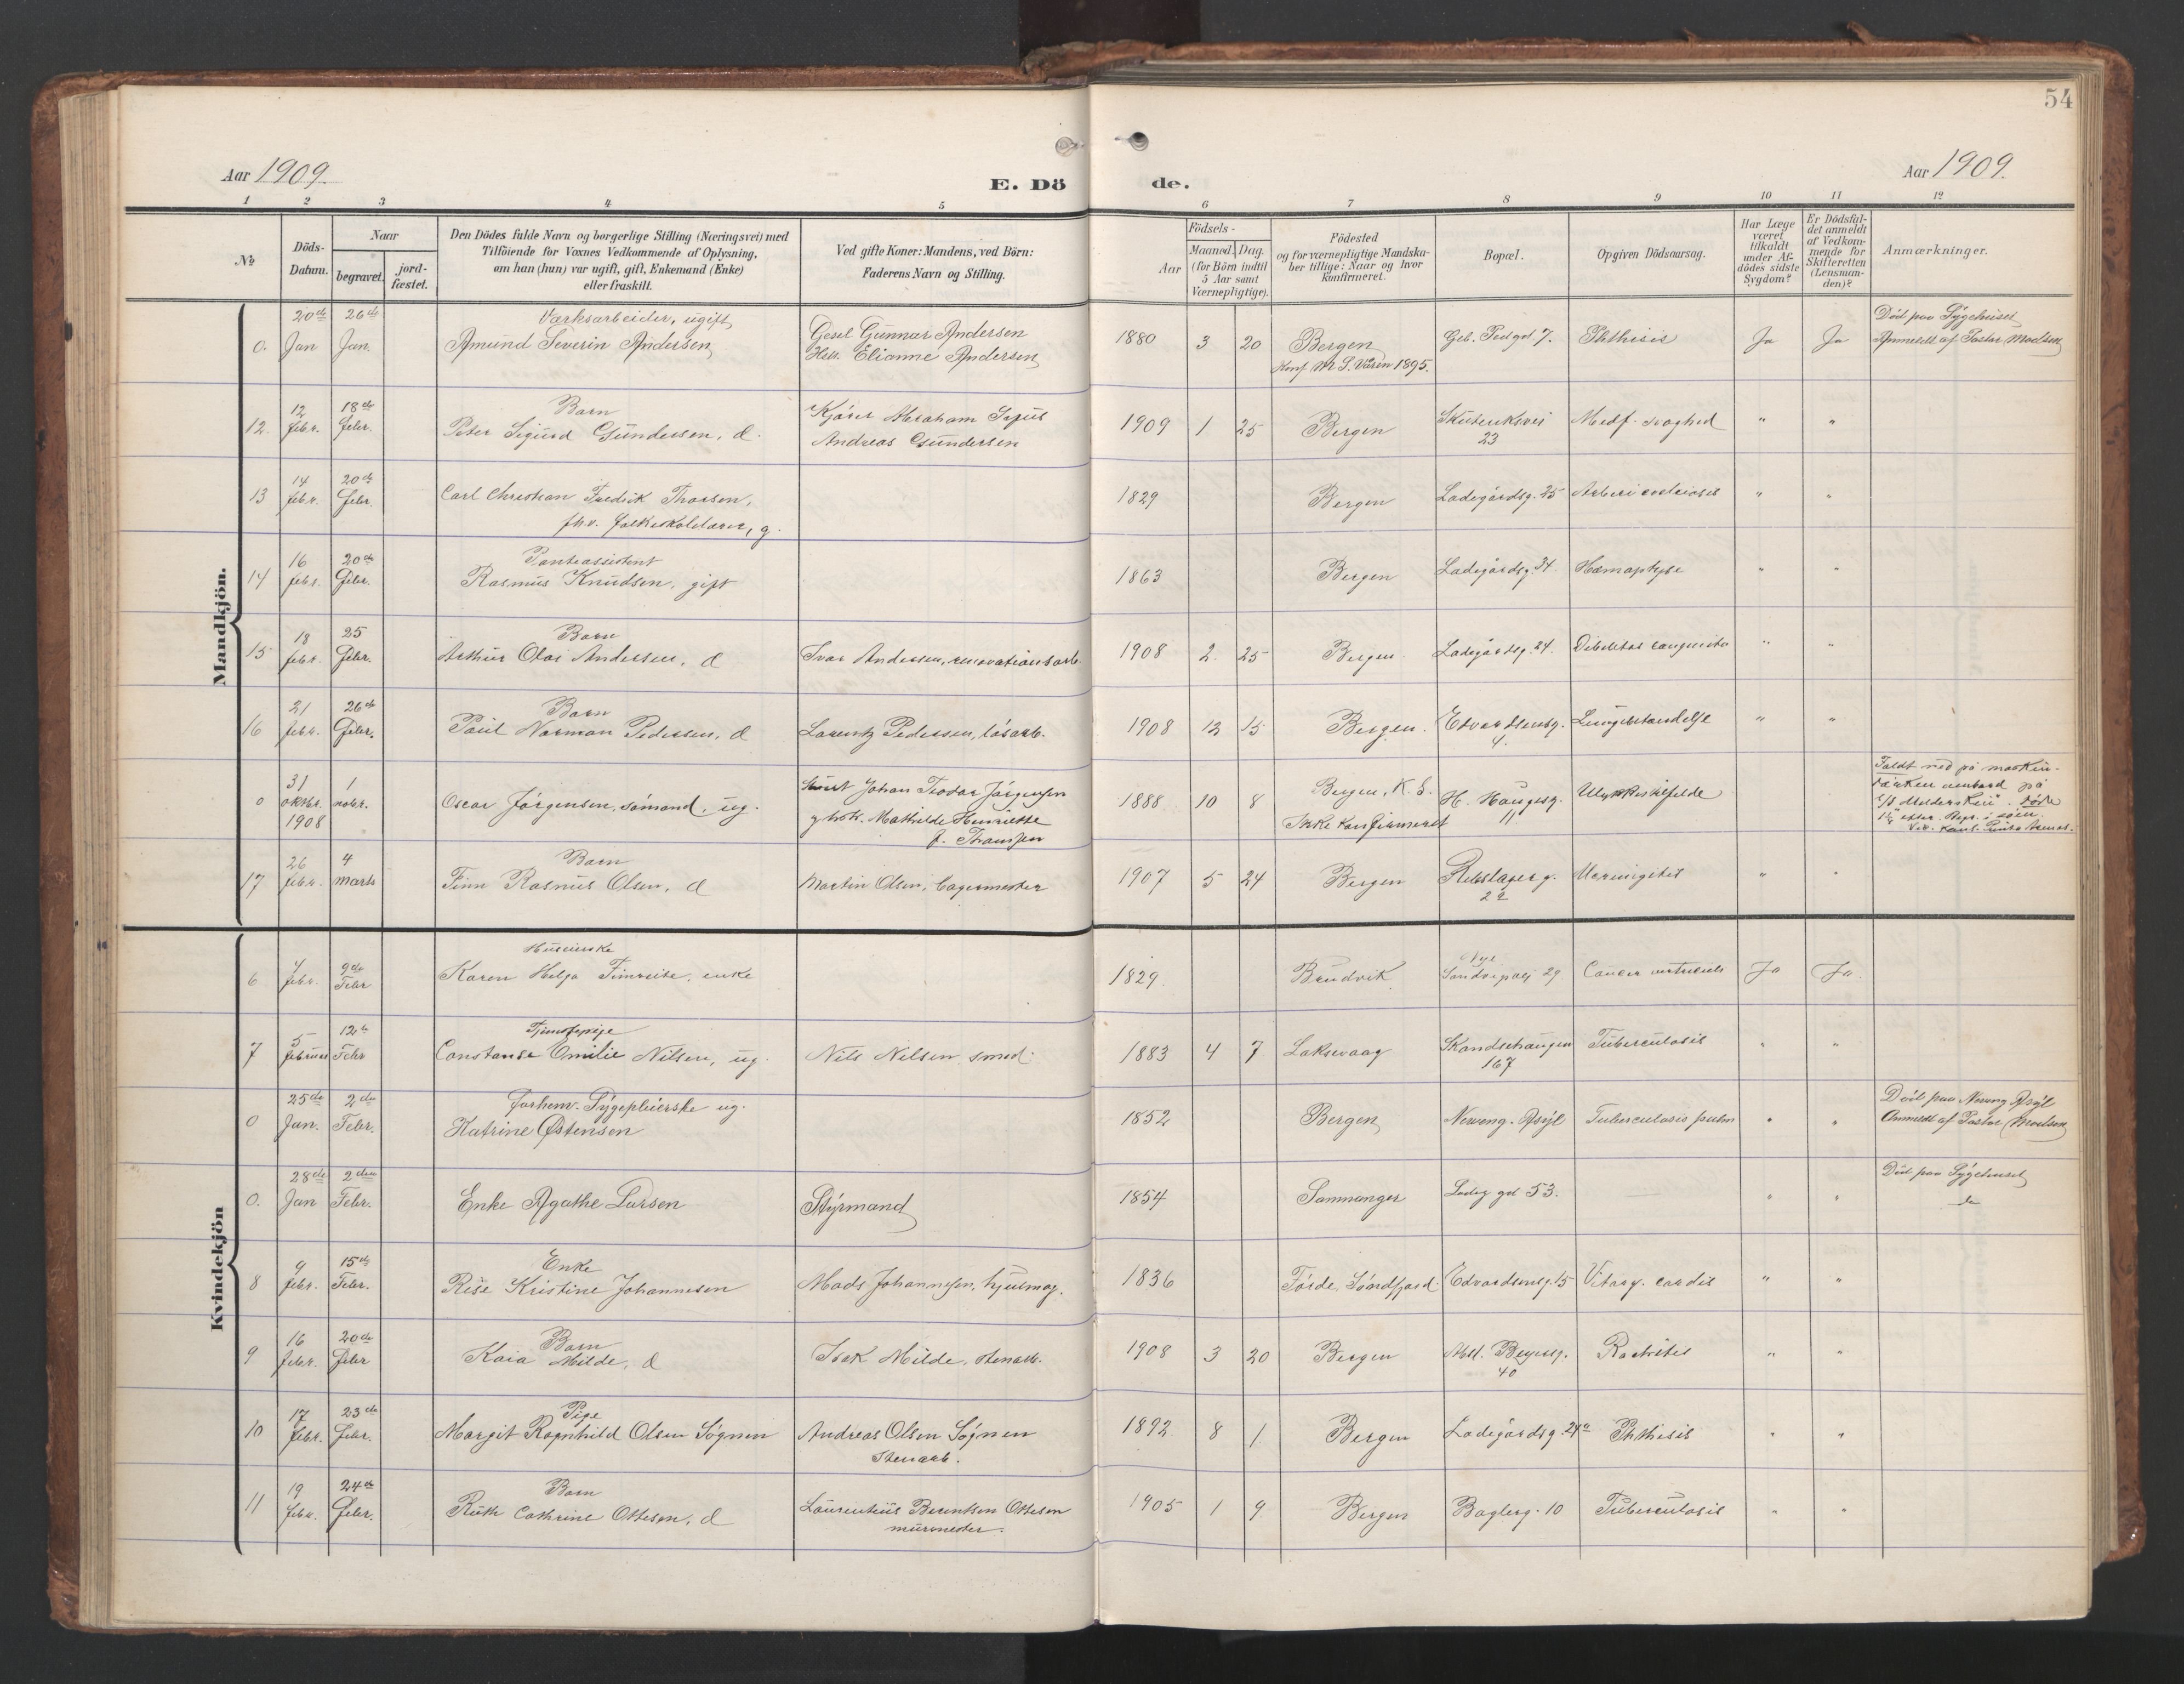 54
Aar 1909.
E. Dö
de.
Aar 1909.
1 2 3 4 5 6 7 8 9 10 11 12
No
Döds-
Datum.
Naar
begravet.
jord-
fæstet.
Den Dödes fulde Navn og borgerlige Stilling (Næringsvei) med
Tilföiende for Voxnes Vedkommende af Oplysning,
om han (hun) var ugift, gift, Enkemand (Enke)
eller fraskilt.
Ved gifte Koner: Mandens, ved Börn:
Faderens Navn og Stilling.
Födsels-
Aar
Maaned. Dag.
(for Börn indtil
5 Aar samt
Værnepligtige).
Födested
og for værnepligtige Mandska-
ber tillige: Naar og hvor
konfirmeret.
Bopæl.
Opgiven Dödsaarsag.
Har Læge
været
tilkaldt
under Af-
dödes sidste
Sygdom?
Er Dödsfal-
det anmeldt
af Vedkom-
mende for
Skifteretten
(Lensman-
den)?
Anmærkninger.
Mandkjön.
0. 20de Jan 26de Jan.
Værksarbeider, ugift
Amund Severin Andersen
Gesel Gunnar Andersen
Hus. Elianne Andersen
1880 3 20 Bergen
Konf. Vaaren 1895.
7. Phthisis Ja Ja
Död paa Sygehuset
Anmeldt af Pastor Madsen
12. 12 febr. 18de Febr.
Barn
Peter Sigurd Gundersen, d.
Kjører Abraham
Andreas Gundersen
1909 1 25 Bergen
Skuteviksvei
23
Medf. svaghed " "
13 14 febr. 20de Febr.
Carl Christian Fredrik Thorsen,
fhv. folkeskolelærer, g.
1829 Bergen Ladegårdsg. 25 " "
14 16 febr. 20de Febr.
Panteassistent
Rasmus Knudsen, gift
1863 Bergen Ladegårdsg. 34. Hæmoptyse " "
15 18 febr. 25 Febr.
Barn
Arthur Olai Andersen, d
Ivar Andersen, renovationsarb.
1908 2. 25 Bergen. Ladegårdsg. 24. Debilitas congenita " "
16 21 febr. 26de Febr.
Barn
Paul Norman Pedersen, d
Lorentz Pedersen, løsarb.
1908 12 15 Bergen. Edvardsensg.
4.
Lungebetændelse " "
0 31 oktbr. 1908 1 nobr.
Oscar Jörgensen, sømand, ug.
Johan Teodor Jörgensen
g. h. Mathilde Henriette
f.
1888 10 8 Bergen, K. S.
Ikke konfirmeret
H. Haugesg.
11.
Ulykkestilfælde
Faldt ned på maskin-
dørken ombord på
17 26 febr. 4 Marts
Barn
Finn Rasmus Olsen, d
Martin Olsen, bagermester
1907 5 24 Bergen Rebslagerg.
22
Meningitis " "
Kvindekjön
6 4 febr. 9de Febr
Huseierske
Karen Helga Timreite, enke
1829. Brudvik Nye
Sandviksvei 29 Cancer ventriculi Ja Ja.
7 5 februar 12te Febr
Tjenestepige
Constanse Emilie Nilsen, ug.
Nils Nilsen smed.
1883 4 7 Laksevaag Skandsehaugen
167
Tuberculosis " "
0 25de Jan. 2den Febr.
Forhenv. Sygepleierske ug.
Katrine Østensen
1852 Bergen Neveng. Asyl Tuberculosis pulm " "
Död paa Neveng Asyl
Anmeldt af Pastor Madsen
0. 28de Jan 2den Febr.
Enke Agathe Larsen
Styrmand
1854 Samnanger Ladeg gd 53. " "
Död paa Sygehuset
do
8 9 febr. 15de Febr.
Enke
Rise Kristine Johannesen
Mads Johannesen, hjulmag.
1836 Förde, Söndfjord. Edvardsensg. 15 Vitium cordis " "
9 16 febr. 20de Febr
Barn
Kaia Milde, d
Isak Milde, stenarb.
1908 3 20 Bergen Abs. Beyersg.
40
Rachitis " "
10 17 febr. 23de Febr.
Pige
Margit Ragnhild Olsen Søgnen
Andreas Olsen Søgnen
Stenarb.
1892 8 1 Bergen Ladegårdsg. 24a Phthisis " "
11 19 febr. 24de Febr.
Barn
Ruth Cathrine Ottesen, d
Laurentius Berentsen Ottesen
murmester.
1905 1 9 Bergen Baglerg. 10 Tuberculosis " "